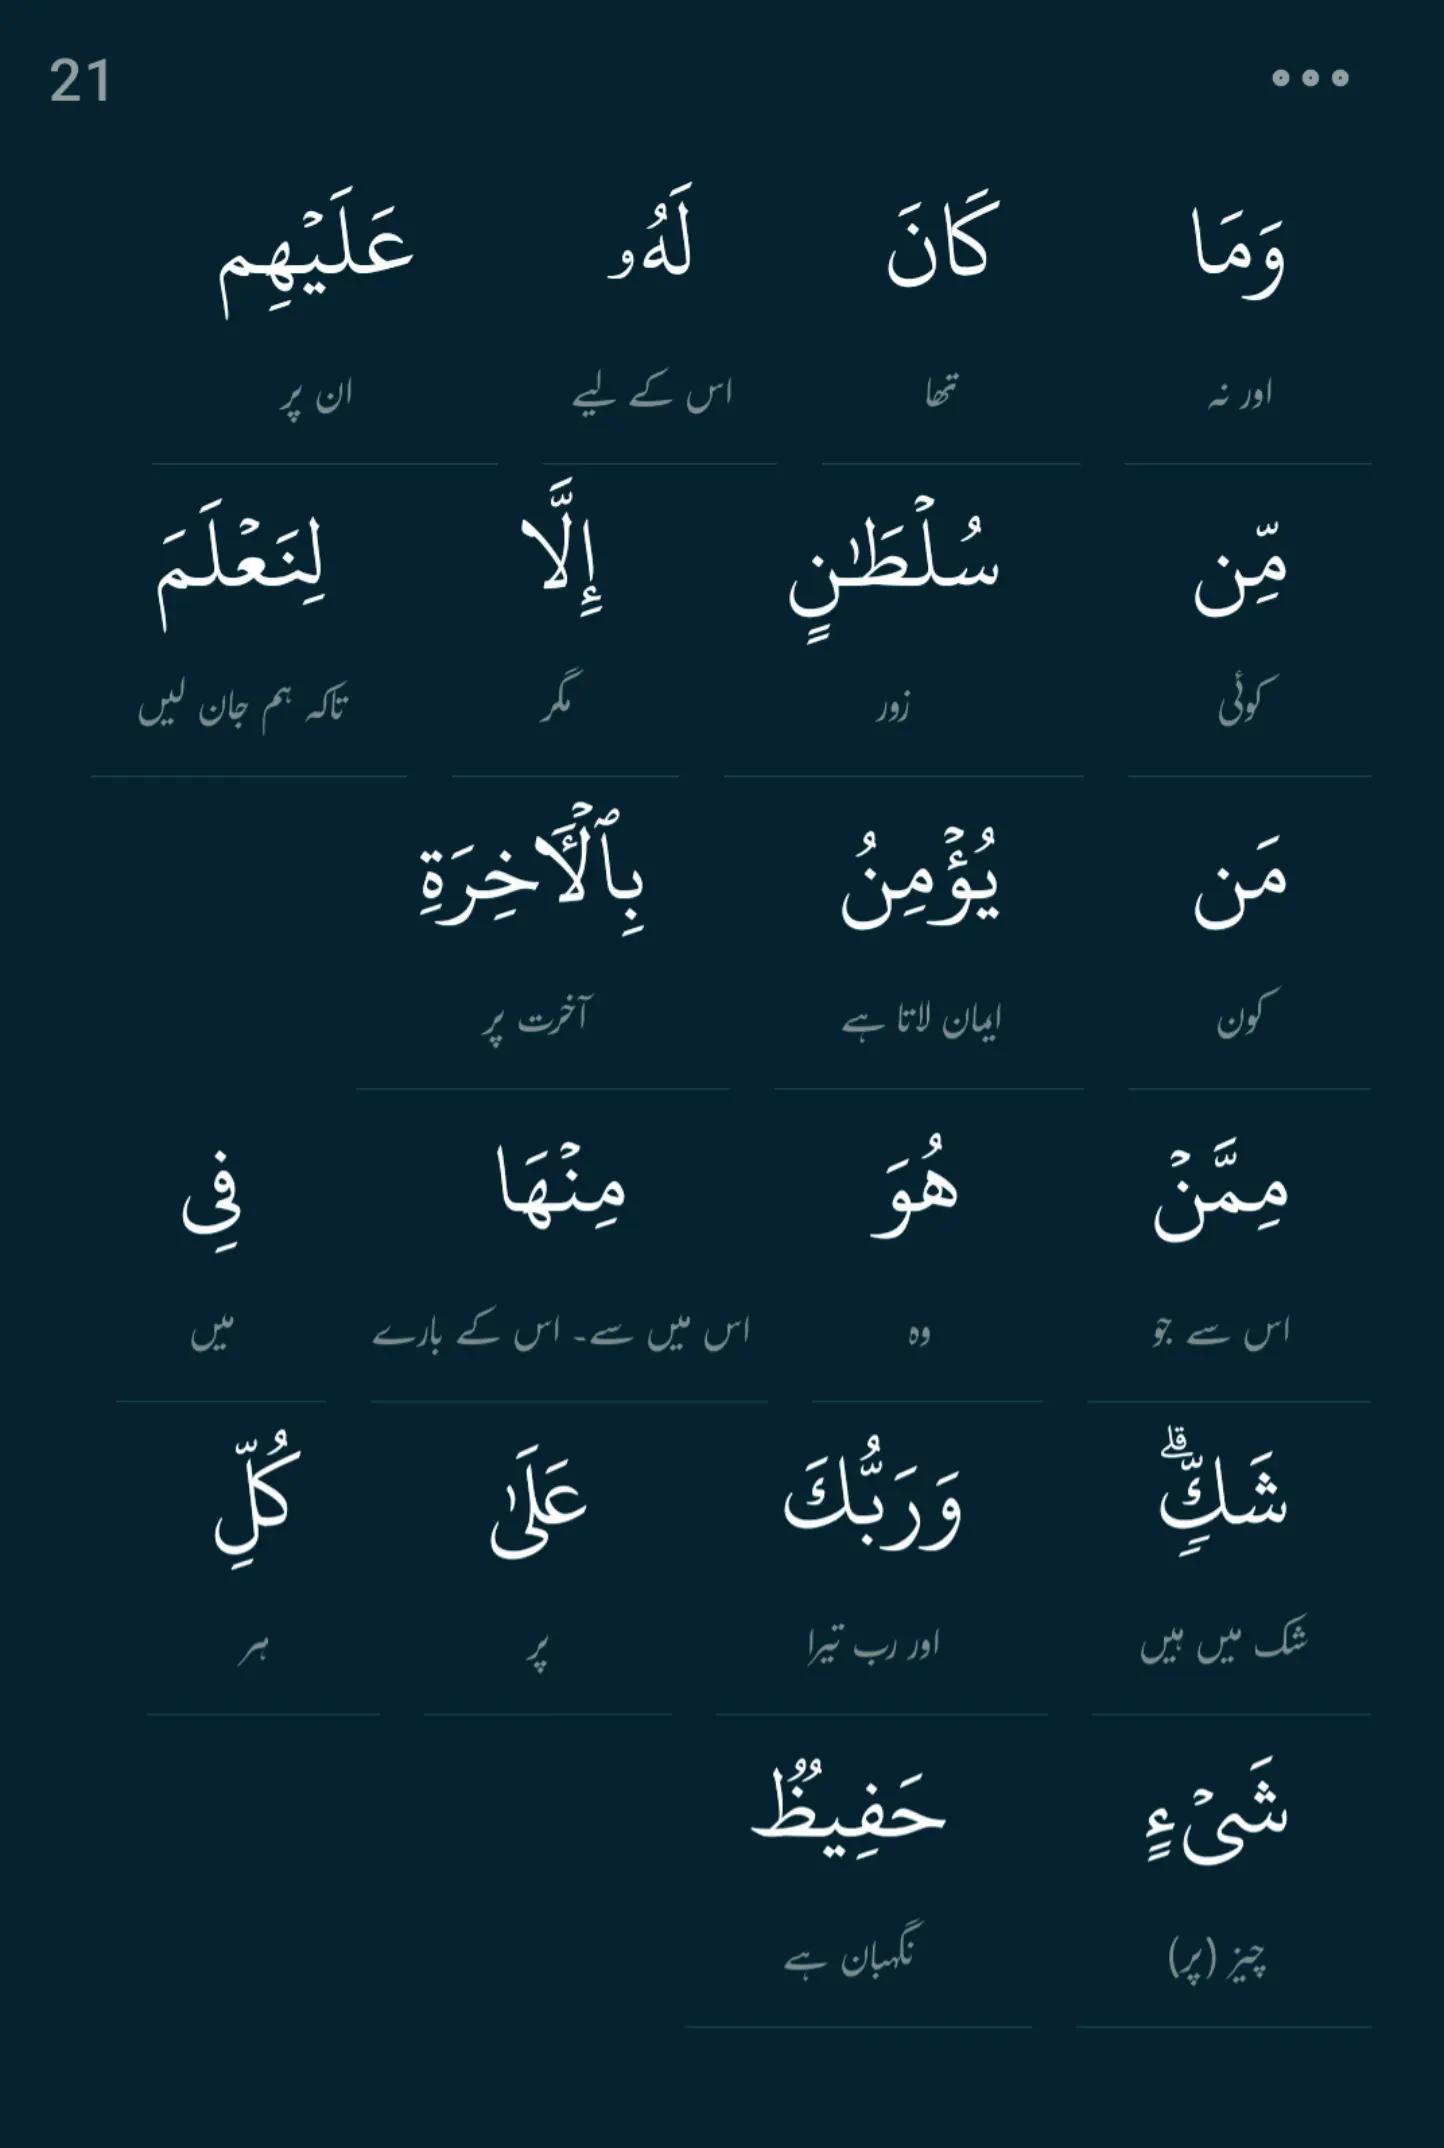 21
وَمَا كَانَ لَهُۥ عَلَيْهِم
اور نہ تھا اس کے لیے ان پر
مِّن سُلْطَـٰنٍ إِلَّا لِنَعْلَمَ
کوئی زور مگر تاکہ ہم جان لیں
مَن يُؤْمِنُ بِٱلْـَٔاخِرَةِ
کون ایمان لاتا ہے آخرت پر
مِمَّنْ هُوَ مِنْهَا فِى
اس سے جو وہ اس میں سے۔ اس کے بارے میں
شَكٍّ ۗ وَرَبُّكَ عَلَىٰ كُلِّ
شک میں ہیں اور رب تیرا پر ہر
شَىْءٍ حَفِيظٌ
چیز (پر) نگہبان ہے